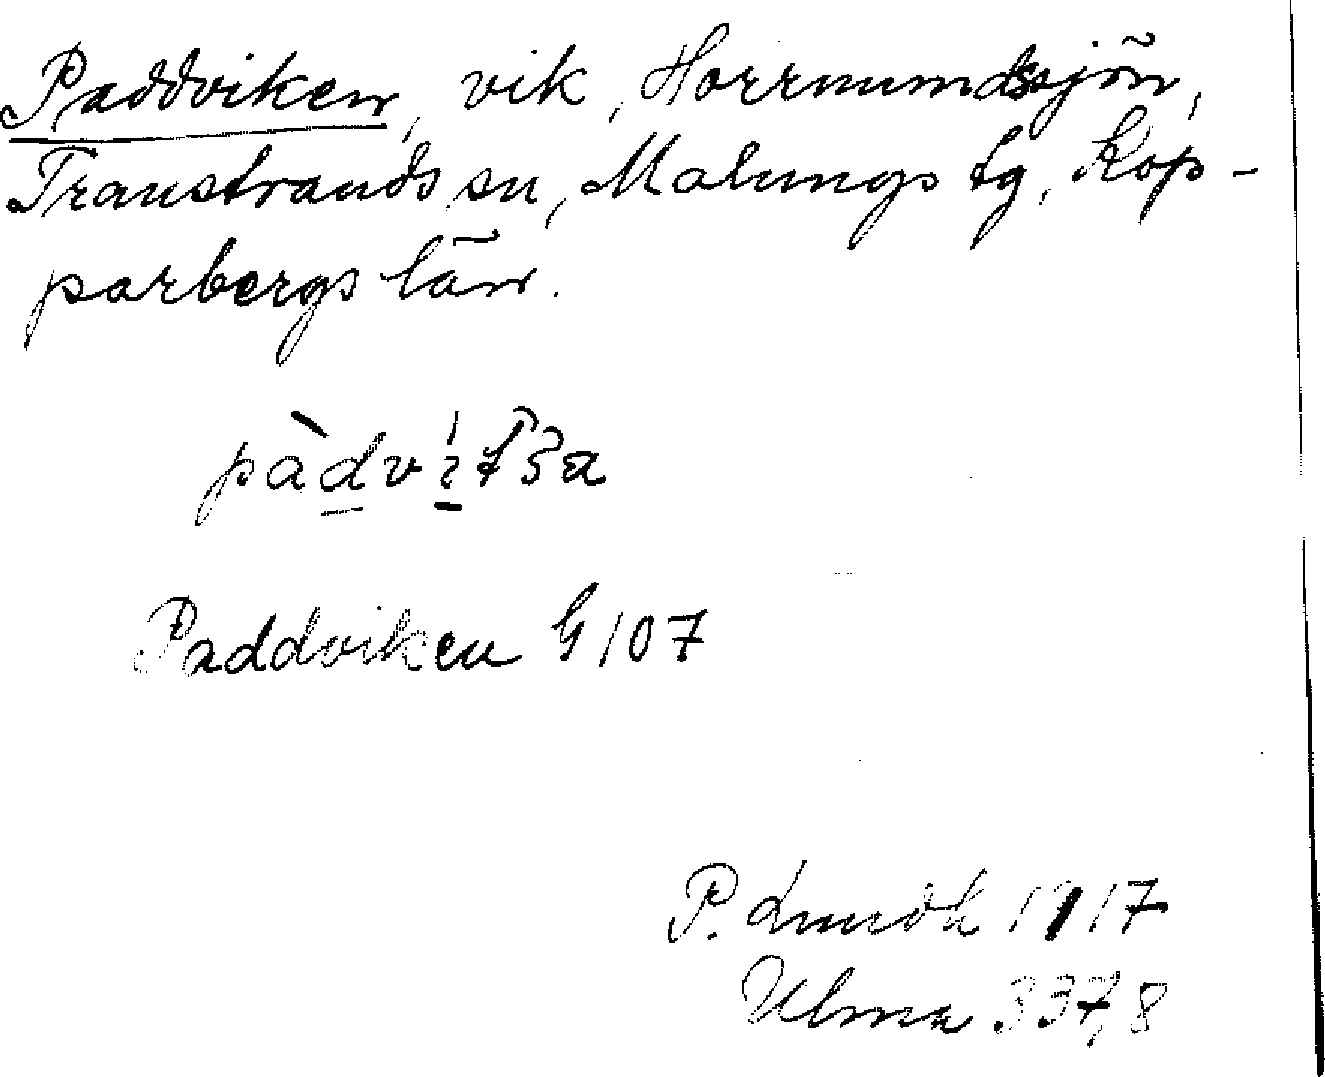 Paddviken, vik, Horrmundssjön,
Transtrands sn, Malungs tg, Kop-
parbergs län.
Paddviken G 107
P. Lindk 1917
Ulma 337,8